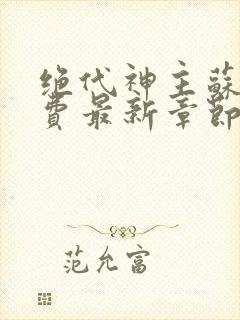 绝代神主蘇
費最新章節
范允富